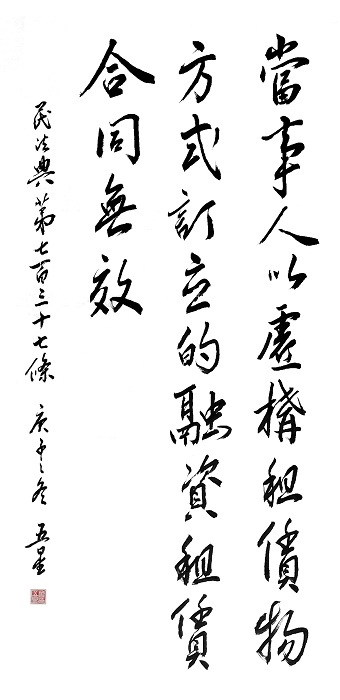 當事人以虛構租賃物
方式訂立的融資租賃
合同無效
民法典第七百三十七條 庚子冬 五星